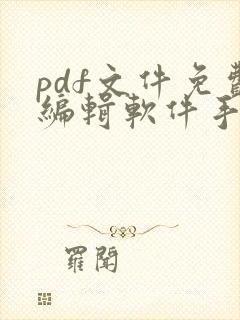 pdf文件免費
編輯軟件手
羅聞